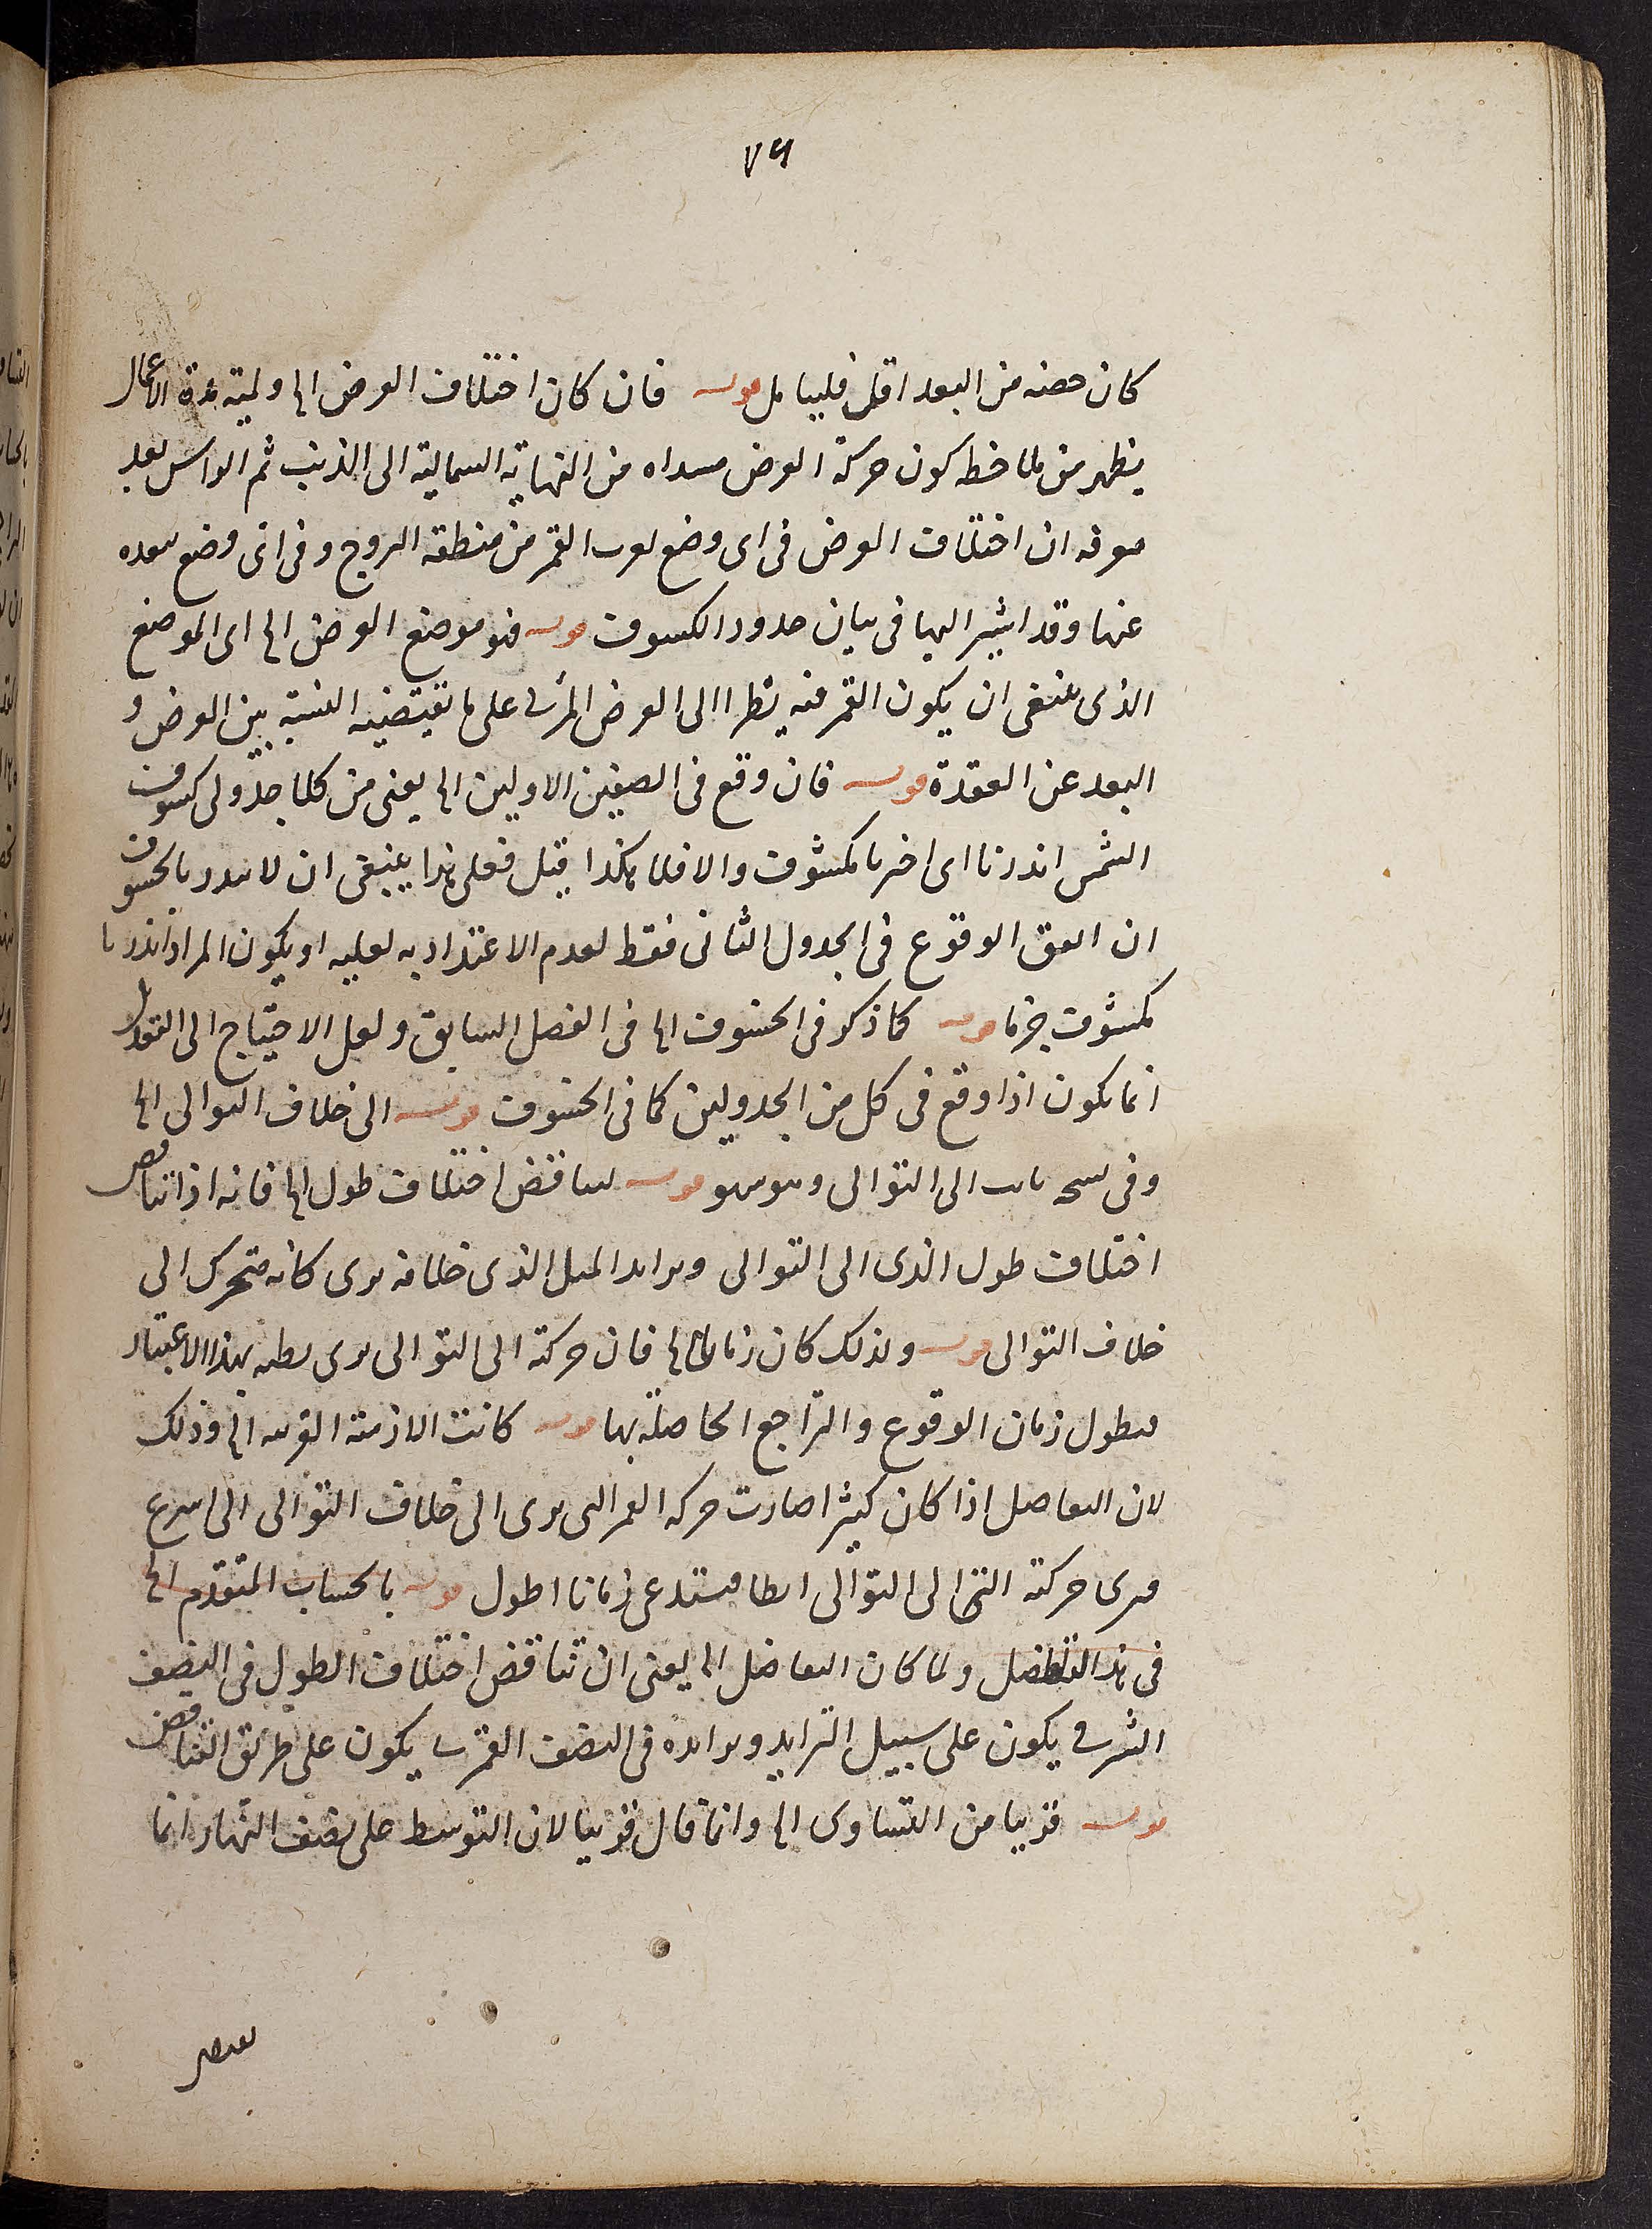 ٧٩
كان حصته من البعد اقل فليتامل قوله فان كان اختلاف العرض الخ ولمية هذه الاعمال
يظهر من ملاحظه كون حركة العرض مبتداه من النهاية الشمالية الى الذنب ثم الراس بعد
معرفه ان اختلاف العرض فى اى وضع يقرب القمر من منطقة البروج وفى اى وضع يبعده
عنها وقد اشير اليها فى بيان حدود الكسوف قوله فهو موضع العرض الخ اى الموضع
الذى ينبغى ان يكون القمر فيه نظرا الى العرض المرئى على ما تقتضيه النسبة بين العرض و
البعد عن العقدة قوله فان وقع فى الصفين الاولين الخ يعنى من كلا جدولى كسوف
الشمس انذرنا اى اخبرنا بكسوف والا فلا هكذا قيل فعلى هذا ينبغى ان لا ينذر بالخسوف
ان اتفق الوقوع فى الجدول الثانى فقط لعدم الاعتداد به لقلته او يكون المراد انذرنا
بكسوف جزما قوله كما ذكر فى الخسوف الخ فى الفصل السابق ولعل الاحتياج الى التعديل
انما يكون اذا وقع فى كل من الجدولين كما فى الخسوف قوله الى خلاف التوالى الخ
وفى نسخة ثابت الى التوالى وهو سهو قوله لتناقض اختلاف طول الخ فانه اذا تناقص
اختلاف طول الذى الى التوالى وتزايد الميل الذى خلافه يرى كانه متحرك الى
خلاف التوالى قوله ولذلك كان زمانا الخ فان حركته الى التوالى يرى بطيه بهذا الاعتبار
فيطول زمان الوقوع والتراجع الحاصلة بها قوله كانت الازمنة القريبه الخ وذلك
لان التفاضل اذا كان كثيرا صارت حركه القمر التى يرى الى خلاف التوالى الى اسرع
فيرى حركته التى الى التوالى ابطا فيستدعى زمانا اطول قوله بالحساب المتقدم الخ
فى هذا الفصل ولما كان التفاضل الخ يعنى ان تناقض اختلاف الطول فى النصف
الشرقى يكون على سبيل التزايد وتزايده فى النصف الغربى يكون على طريق التناقص
قوله قريبا من التساوى الخ وانما قال قريبا لان التوسط على نصف النهار انما